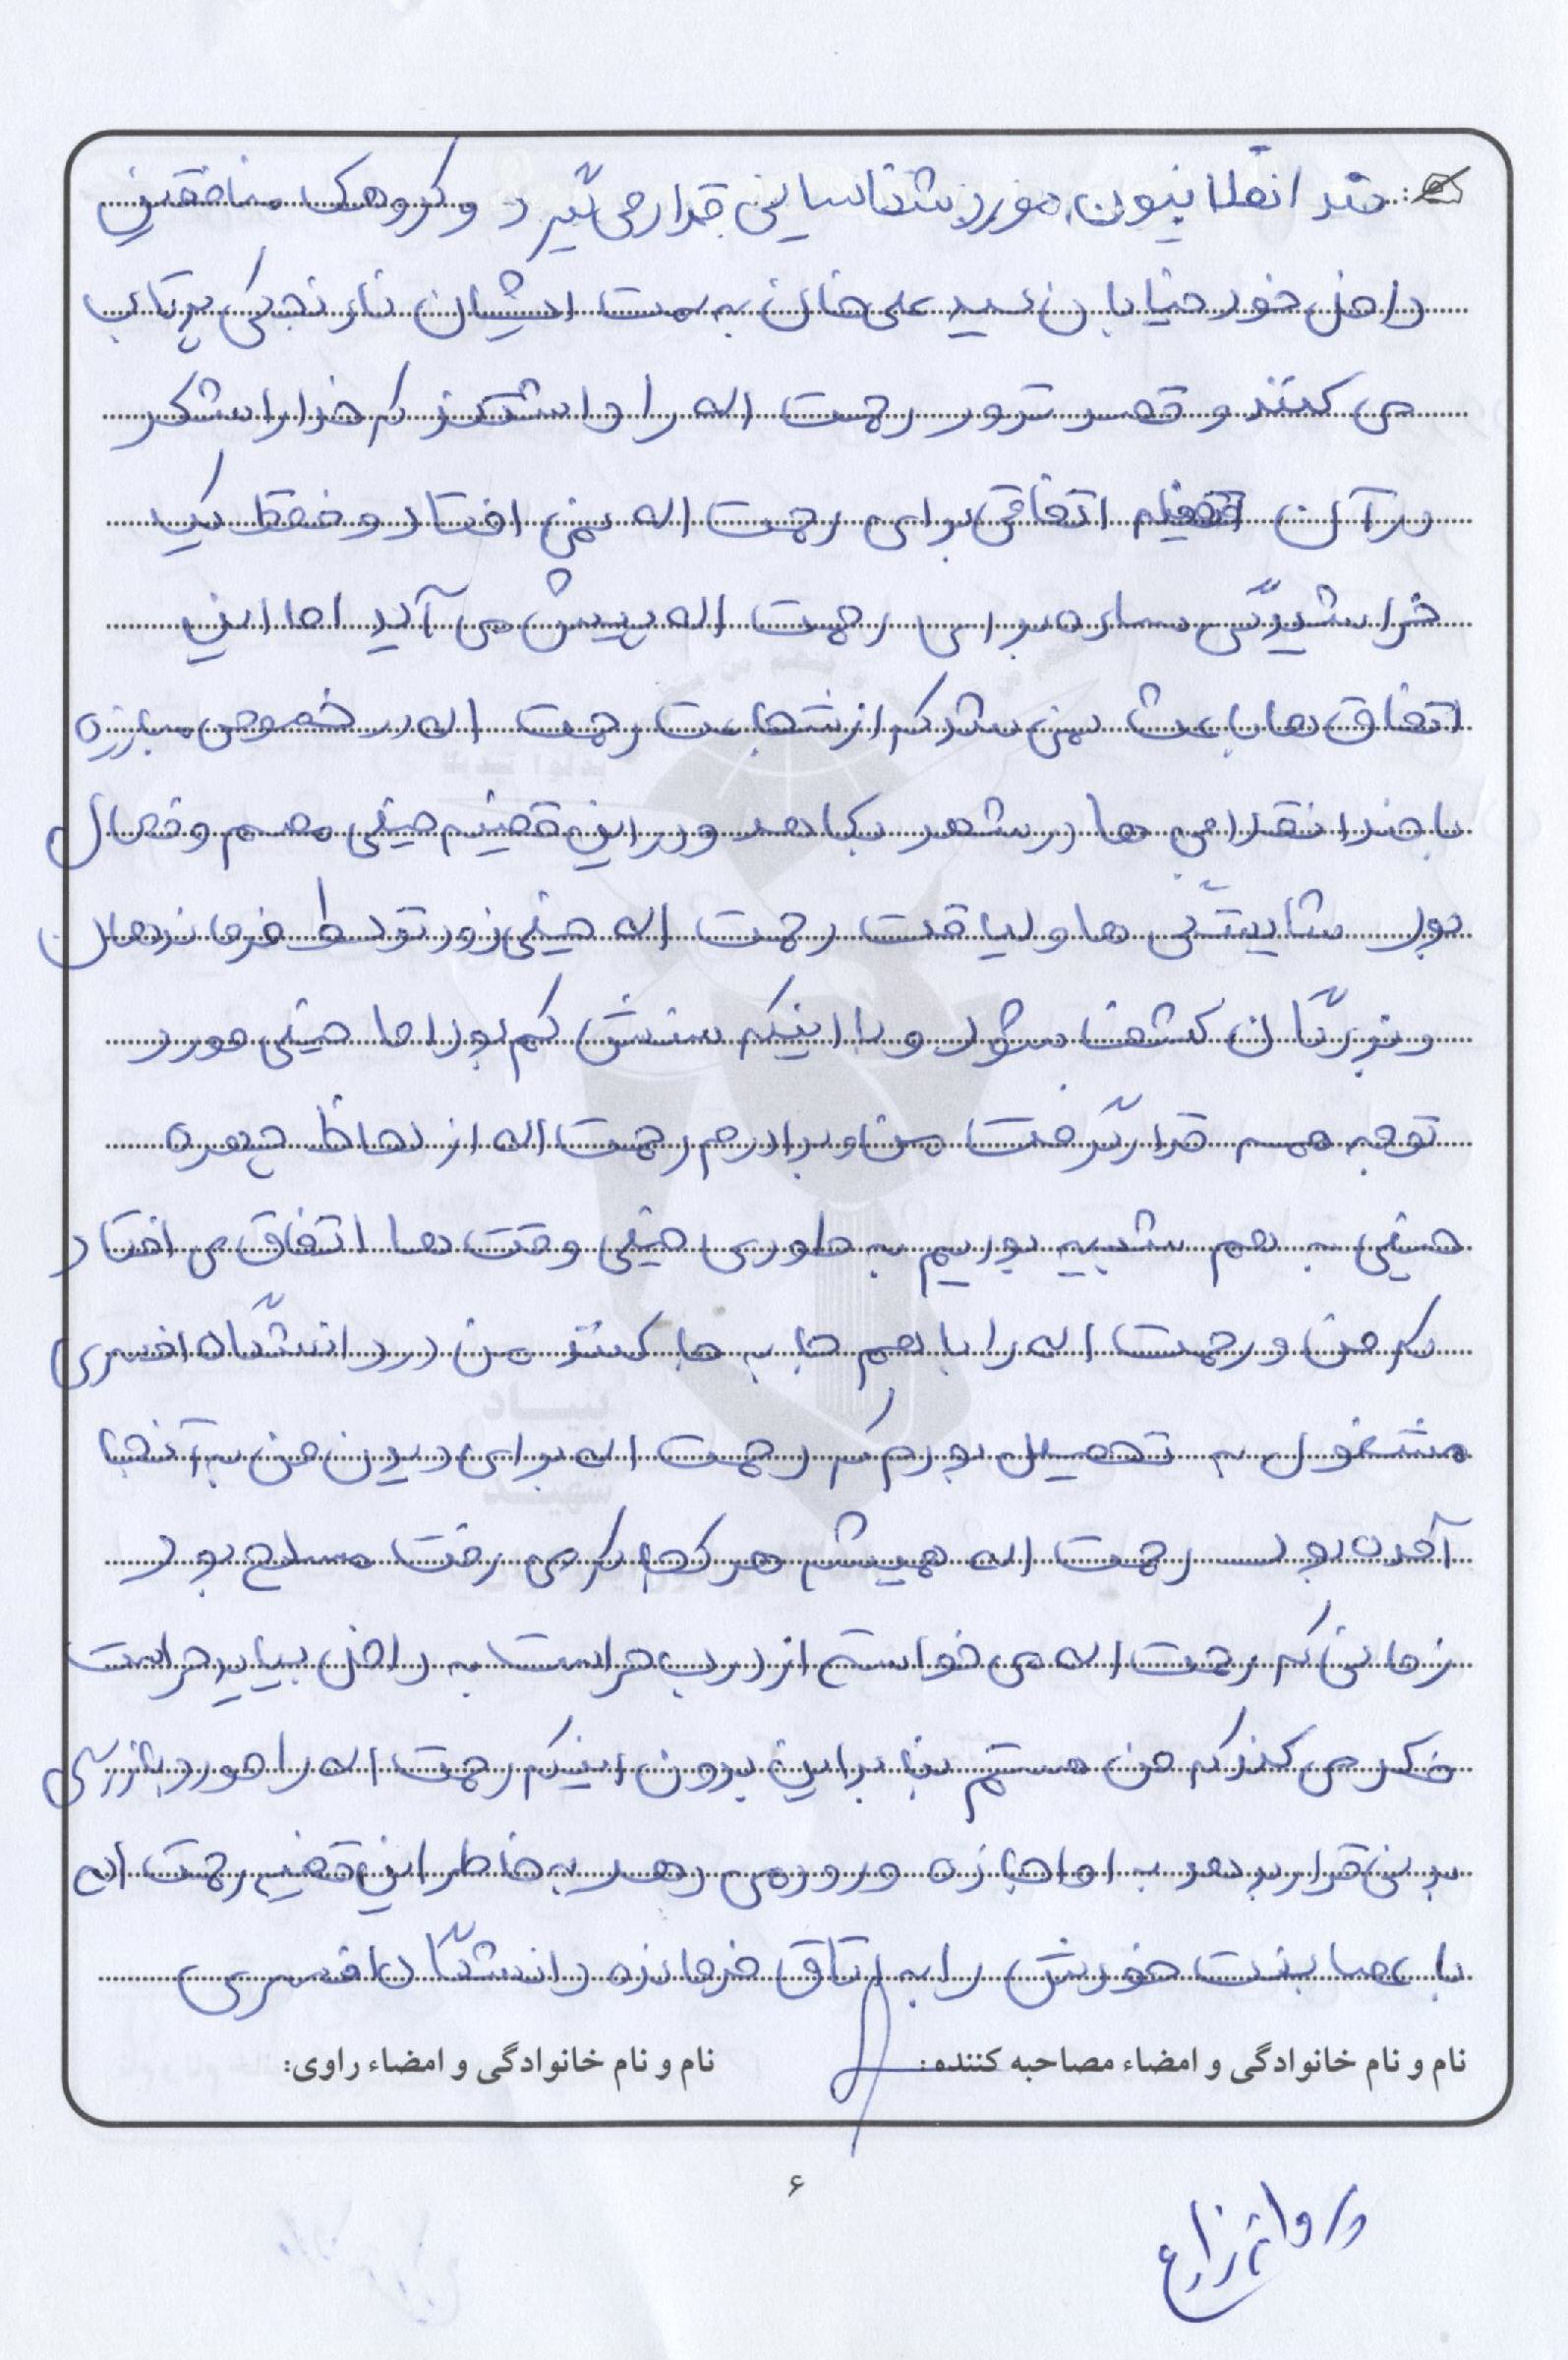 ضد انقلابیون مورد شناسایی قرار می گیرد و گروهک منافقین
داخل خود خیابان سید علی خان به سمت ایشان نارنجکی پرتاب
می کنند و قصد ترور رحمت اله را داشتند که خدا را شکر
در آن اتفاقی برای رحمت اله نمی افتاد و فقط یک
خراشیدگی ساده برای رحمت اله پیش می آید اما این
اتفاق ها باعث نمی شد که از شجاعت رحمت اله در خصوص مبارزه
با ضد انقلابی ها در شهر بکاهد و در این قضیه خیلی مصمم و فعال
بود شایستگی ها و لیاقت رحمت اله خیلی زود توسط فرماندهان
و بزرگان کشف شود و با اینکه سنش کم بود اما خیلی مورد
توجه همه قرار گرفت من و برادرم رحمت اله از لحاظ چهره
خیلی به هم شبیه بودیم به طوری خیلی وقت ها اتفاق می افتاد
که من و رحمت اله را با هم جا به جا کنند من در دانشگاه افسری
مشغول به تحصیل بودم که رحمت اله برای دیدن من به آنجا
آمده بود رحمت اله همیشه هر کجا که می رفت مسلح بود
زمانی که رحمت اله می خواست از درب حراست به داخل بیاید حراست
فکر می کند که من هستم بنا براین بدون اینکه رحمت اله را مورد بازرسی
بدنی قرار بدهد به او اجازه ورود می دهد به خاطر این قضیه رحمت اله
با عصابنت خودش را به اتاق فرمانده دانشگاه افسری
نام و نام خانوادگی و امضاء مصاحبه کننده:
نام و نام خانوادگی و امضاء راوی:
۶